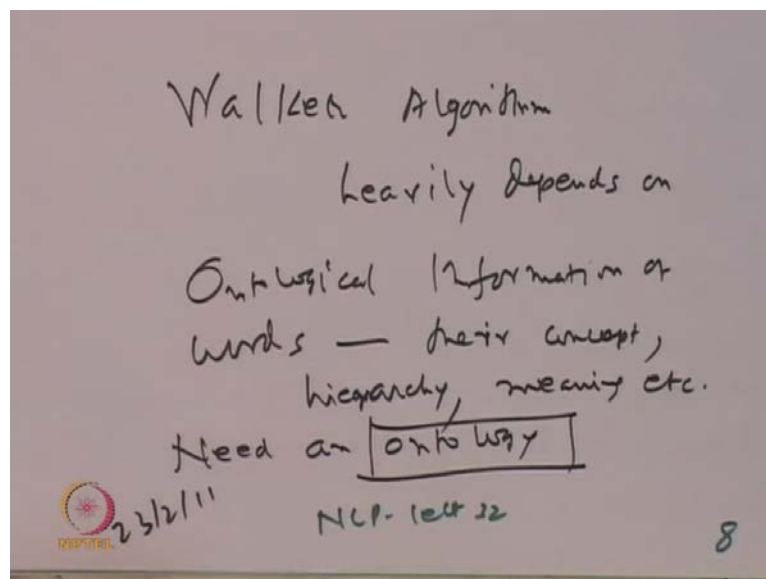 Walker Algorithm
heavily depends on
Ontological Information of
words — their concept,
hierarchy, meaning etc.
Need an ontology
23/2/11
NLP- lect 32
NPTEL
8